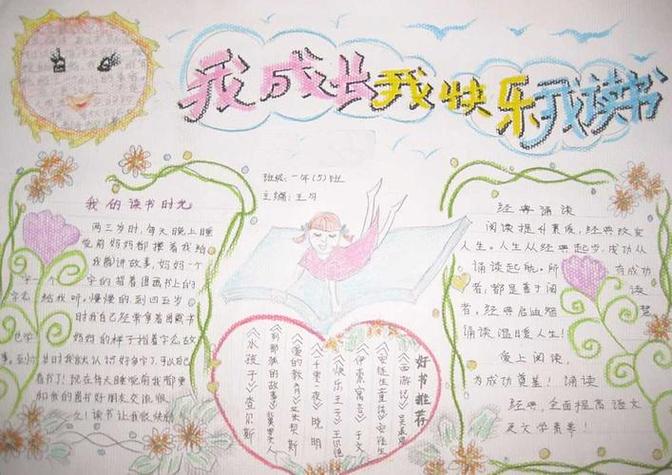 我成长我快乐我读书
班级:一年(5)班
主编:王
我的读书时光
两三岁时,每天晚上睡
觉前妈妈都搂着我给
我翻讲故事,妈妈一个
字一个字的指着图画书上的
字念给我听。慢慢的到四五岁
时我自己经常拿着图画书
也学妈妈的样子指着字念故
事,至
时我就认识好多字了,可以自己
看书了!现在每天睡觉前我都要
和我的图书好朋友交流很
久!读书让我很快乐!
经典诵读
阅读提升素质,经典改变
人生。人生从经典起步,成功从
诵读起航。所有成功
者,都是善于阅读
者,经典启迪智慧
诵读温暖人生!
爱上阅读,
为成功奠基!诵读
经典,全面提高语文
及文学素养!
好书推荐
《西游记》吴承恩
《安徒生童话》安徒生
《伊索寓言》于文
《快乐王子》王尔德
《一千零一夜》晓明
《爱的教育》亚米契斯
《列那狐的故事》
《水孩子》查尔斯